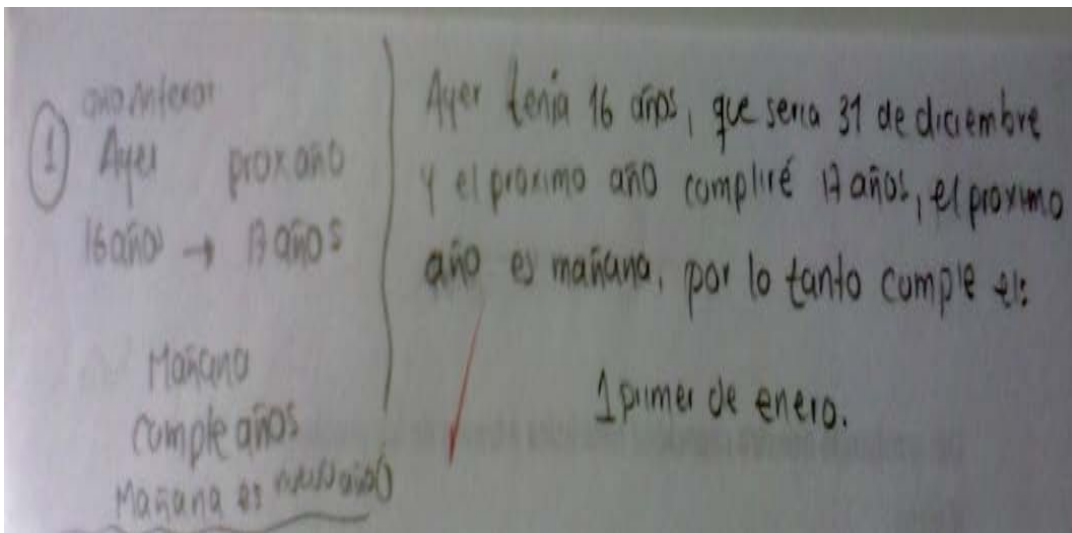 año Anterior
1 Ayer prox año
16 años → 17 años
Mañana
cumple años
Mañana es nuevo año
Ayer tenía 16 años, que seria 31 de diciembre
y el proximo año cumpliré 17 años, el proximo
año es mañana, por lo tanto cumple el:
1 primer de enero.